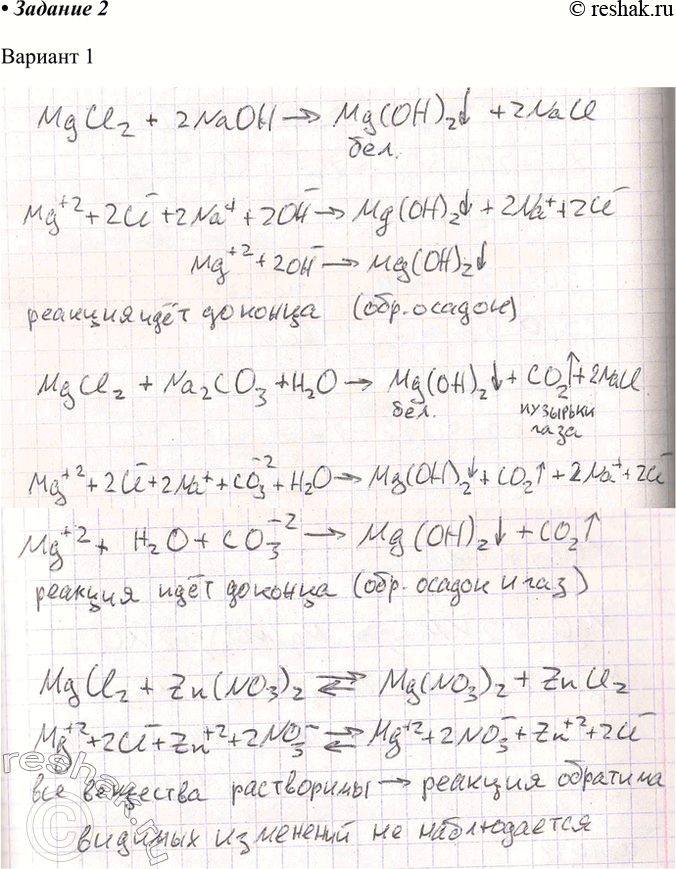 • Задание 2
© reshak.ru
Вариант 1
MgCl₂ + 2NaOH → Mg(OH)₂↓ + 2NaCl
бел.
Mg⁺² + 2Cl⁻ + 2Na⁺ + 2OH⁻ → Mg(OH)₂↓ + 2Na⁺ + 2Cl⁻
Mg⁺² + 2OH⁻ → Mg(OH)₂↓
реакция идёт до конца (обр. осадок)
MgCl₂ + Na₂CO₃ + H₂O → Mg(OH)₂↓ + CO₂↑ + 2NaCl
бел. пузырьки
газа
Mg⁺² + 2Cl⁻ + 2Na⁺ + CO₃⁻² + H₂O → Mg(OH)₂↓ + CO₂↑ + 2Na⁺ + 2Cl⁻
Mg⁺² + H₂O + CO₃⁻² → Mg(OH)₂↓ + CO₂↑
реакция идёт до конца (обр. осадок и газ)
MgCl₂ + Zn(NO₃)₂ ⇄ Mg(NO₃)₂ + ZnCl₂
Mg⁺² + 2Cl⁻ + Zn⁺² + 2NO₃⁻ ⇄ Mg⁺² + 2NO₃⁻ + Zn⁺² + 2Cl⁻
все вещества растворимы → реакция обратима
видимых изменений не наблюдается
© reshak.ru